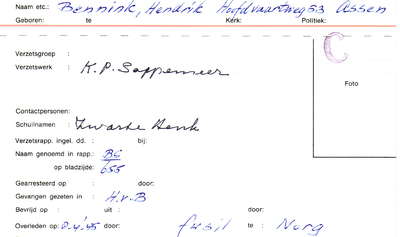 Naam etc.: Bennink, Hendrik Hoofdvaartweg 53 Assen
Geboren: te Kerk: Politiek:
C
Verzetsgroep :
Verzetswerk : K.P. Sappemeer
Foto
Contactpersonen:
Schuilnamen : Zwarte Henk
Verzetsrapp. ingel. dd. : bij:
Naam genoemd in rapp.: BC
op bladzijde: 655
Gearresteerd op : door:
Gevangen gezeten in : H.v.B
Bevrijd op : uit : door:
Overleden op: -4-'45 door: fusil te : Norg